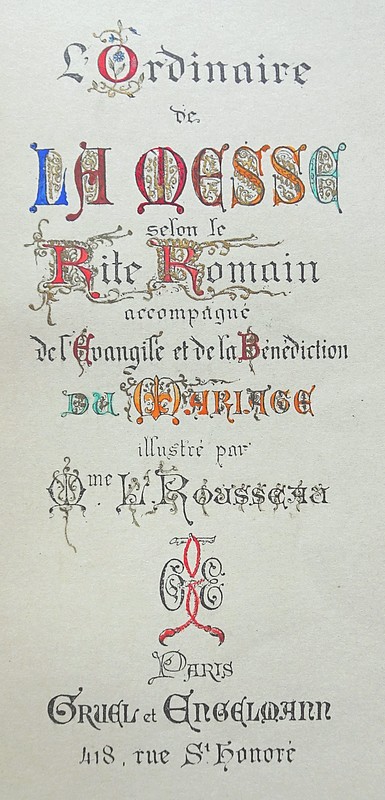 L'Ordinaire
de
LA MESSE
selon le
Rite Romain
accompagné
de l'Evangile et de la Bénédiction
DU MARIAGE
illustré par
Mme Lse ROUSSEAU
G E
PARIS
GRUEL et ENGELMANN
418, rue St Honoré